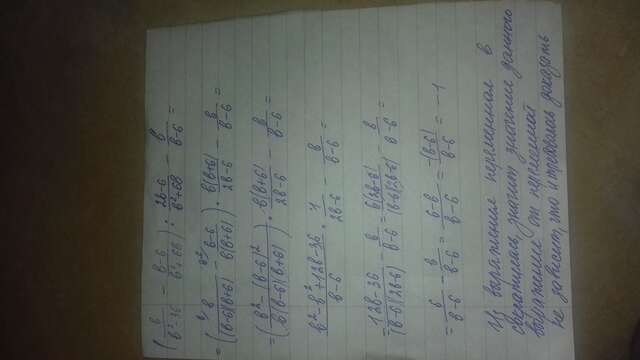 (в/(в²-36) - (в-6)/(в²+6в)) : (2в-6)/(в²+6в) - в/(в-6) =
= (в/ в/((в-6)(в+6)) - в-6/ (в-6)/(в(в+6))) · в(в+6)/(2в-6) - в/(в-6) =
= ((в²-(в-6)²)/(в(в-6)(в+6))) · в(в+6)/(2в-6) - в/(в-6) =
(в²-в²+12в-36)/(в-6) · 1/(2в-6) - в/(в-6) =
= (12в-36)/((в-6)(2в-6)) - в/(в-6) = 6(2в-6)/((в-6)(2в-6)) - в/(в-6) =
= 6/(в-6) - в/(в-6) = (6-в)/(в-6) = -(в-6)/(в-6) = -1
Из выражения переменная в
сократилась, значит значение данного
выражение от переменной
не зависит, что и требовалось доказать